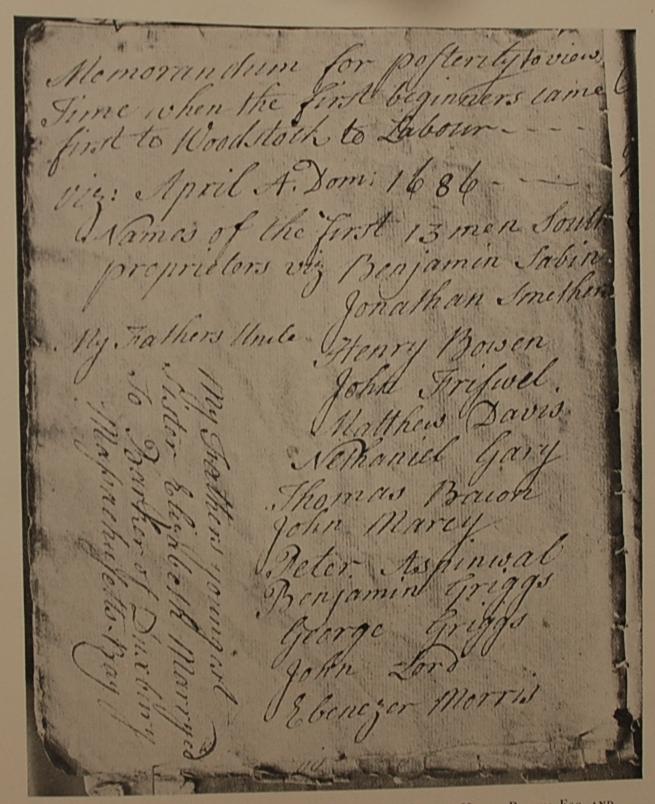 Memorandum for posterity to view
Time when the first beginners came
first to Woodstock to Labour
viz: April A. Dom: 1686
Names of the first 13 men South
proprietors viz Benjamin Sabin
Jonathan Smethers
My Fathers Uncle Henry Bowen
John Friswel
Matthew Davis
Nathaniel Gary
Thomas Bacon
John Marcy
Peter Aspinwal
Benjamin Griggs
George Griggs
John Lord
Ebenezer Morris
My Fathers youngest
Sister Elizabeth Marryed
To Barker of Duxbury
Massachusetts-Bay